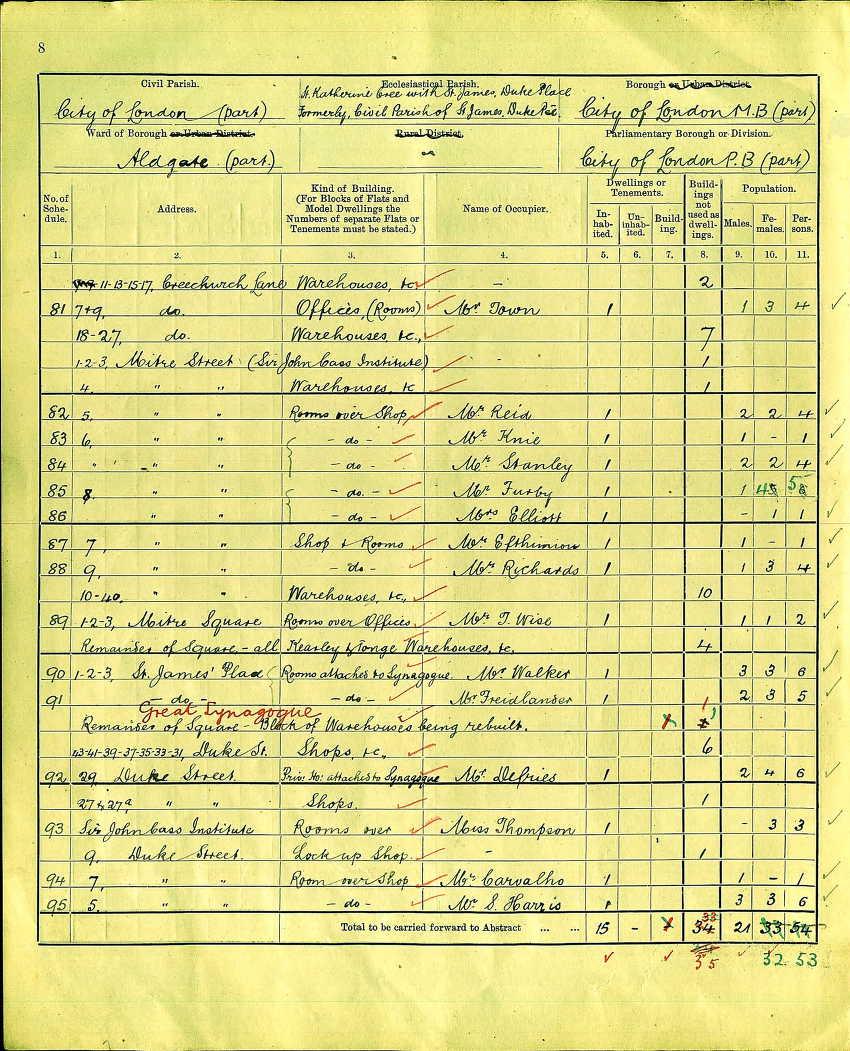 8
Civil Parish. Ecclesiastical Parish. Borough or Urban District.
City of London (part) St. Katherine Cree with St. James, Duke Place City of London M.B (part)
Formerly, Civil Parish of St James, Duke Pce.
Ward of Borough or Urban District. Rural District. Parliamentary Borough or Division.
Aldgate (part.) City of London P.B (part)
No. of Schedule. Address. Kind of Building. (For Blocks of Flats and Model Dwellings the Numbers of separate Flats or Tenements must be stated.) Name of Occupier. Dwellings or Tenements. Inhabited. Uninhabited. Building. Buildings not used as dwellings. Population. Males. Females. Persons.
1. 2. 3. 4. 5. 6. 7. 8. 9. 10. 11.
11-13-15-17, Creechurch Lane Warehouses, &c - 2
81 7+9, do. Offices, (Rooms) Mr Town 1 1 3 4
18-27, do. Warehouses, &c., 7
1-2-3, Mitre Street (Sir John Cass Institute) - 1
4. " " Warehouses, &c 1
82 5, " " Rooms over Shop, Mr Reid 1 2 2 4
83 6, " " - do - Mr Knie 1 1 - 1
84 " " " - do - Mr Stanley 1 2 2 4
85 8, " " - do. - Mr Furby 1 1 4 5 5 6
86 " " - do - Mrs Elliott 1 - 1 1
87 7, " " Shop & Rooms Mr Efthimion 1 1 - 1
88 9, " " - do - Mr Richards 1 1 3 4
10-40, " " Warehouses, &c., 10
89 1-2-3, Mitre Square Rooms over Offices Mr T. Wise 1 1 1 2
Remainder of Square, - all Kearley & Tonge Warehouses, &c. 4
90 1-2-3, St. James' Place Rooms attached to Synagogue Mr Walker 1 3 3 6
91 - do - - do - Mr Freidlander 1 2 3 5
Great Synagogue 1
Remainder of Square - Block of Warehouses being rebuilt.
43-41-39-37-35-33-31, Duke St. Shops, &c., 6
92 29, Duke Street. Priv. Ho. attached to Synagogue Mr Defries 1 2 4 6
27 & 27a " " Shops. 1
93 Sir John Cass Institute Rooms over Miss Thompson 1 - 3 3
9, Duke Street. Lock up Shop. - 1
94 7, " " Room over Shop Mr Carvalho 1 1 - 1
95 5. " " - do - Mr S. Harris 1 3 3 6
Total to be carried forward to Abstract ... ... 15 - 1 33 34 21 33 54
35 32 53